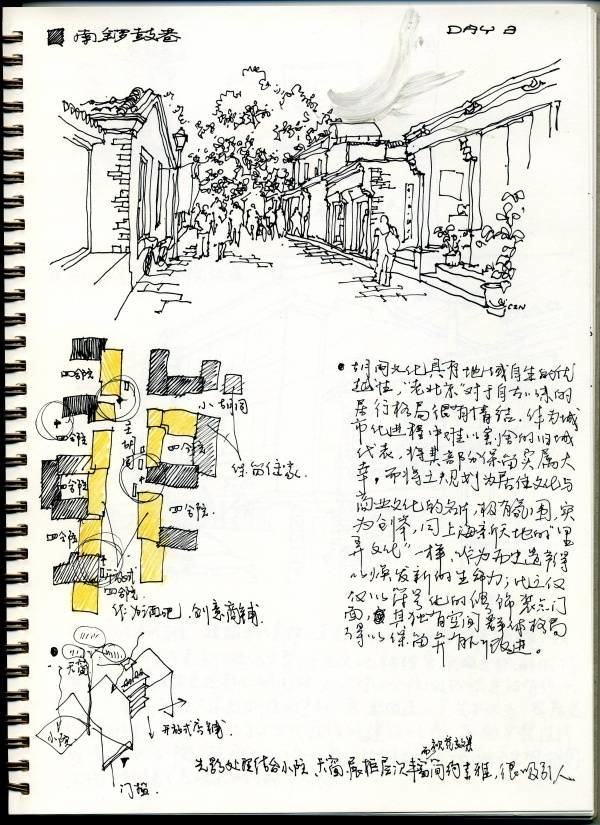 南锣鼓巷
DAY 8
CZN
四合院
小胡同
四合院
主胡同
四合院
保留住家
四合院
四合院
四合院
开放式四合院
作为酒吧、创意商铺
胡同文化具有地域自生的优
越性，"老北京"对于自己小味的
居行格局很有情结，作为城
市化进程中难以割舍的旧城
代表，将其部分保留实属大
幸，而将之规划为居住文化与
商业文化的名片，极有氛围，实
为创举，同上海新天地的"里
弄文化"一样，作为历史遗产得
以焕发新的生命力；此之仅
仅以符号化的偶饰装点门
面，其独有空间群体格局
得以保留并有所改进。
天窗
小院
开放式店铺
门槛
光影处理结合小院、天窗、展柜层次丰富简约素雅，很吸引人